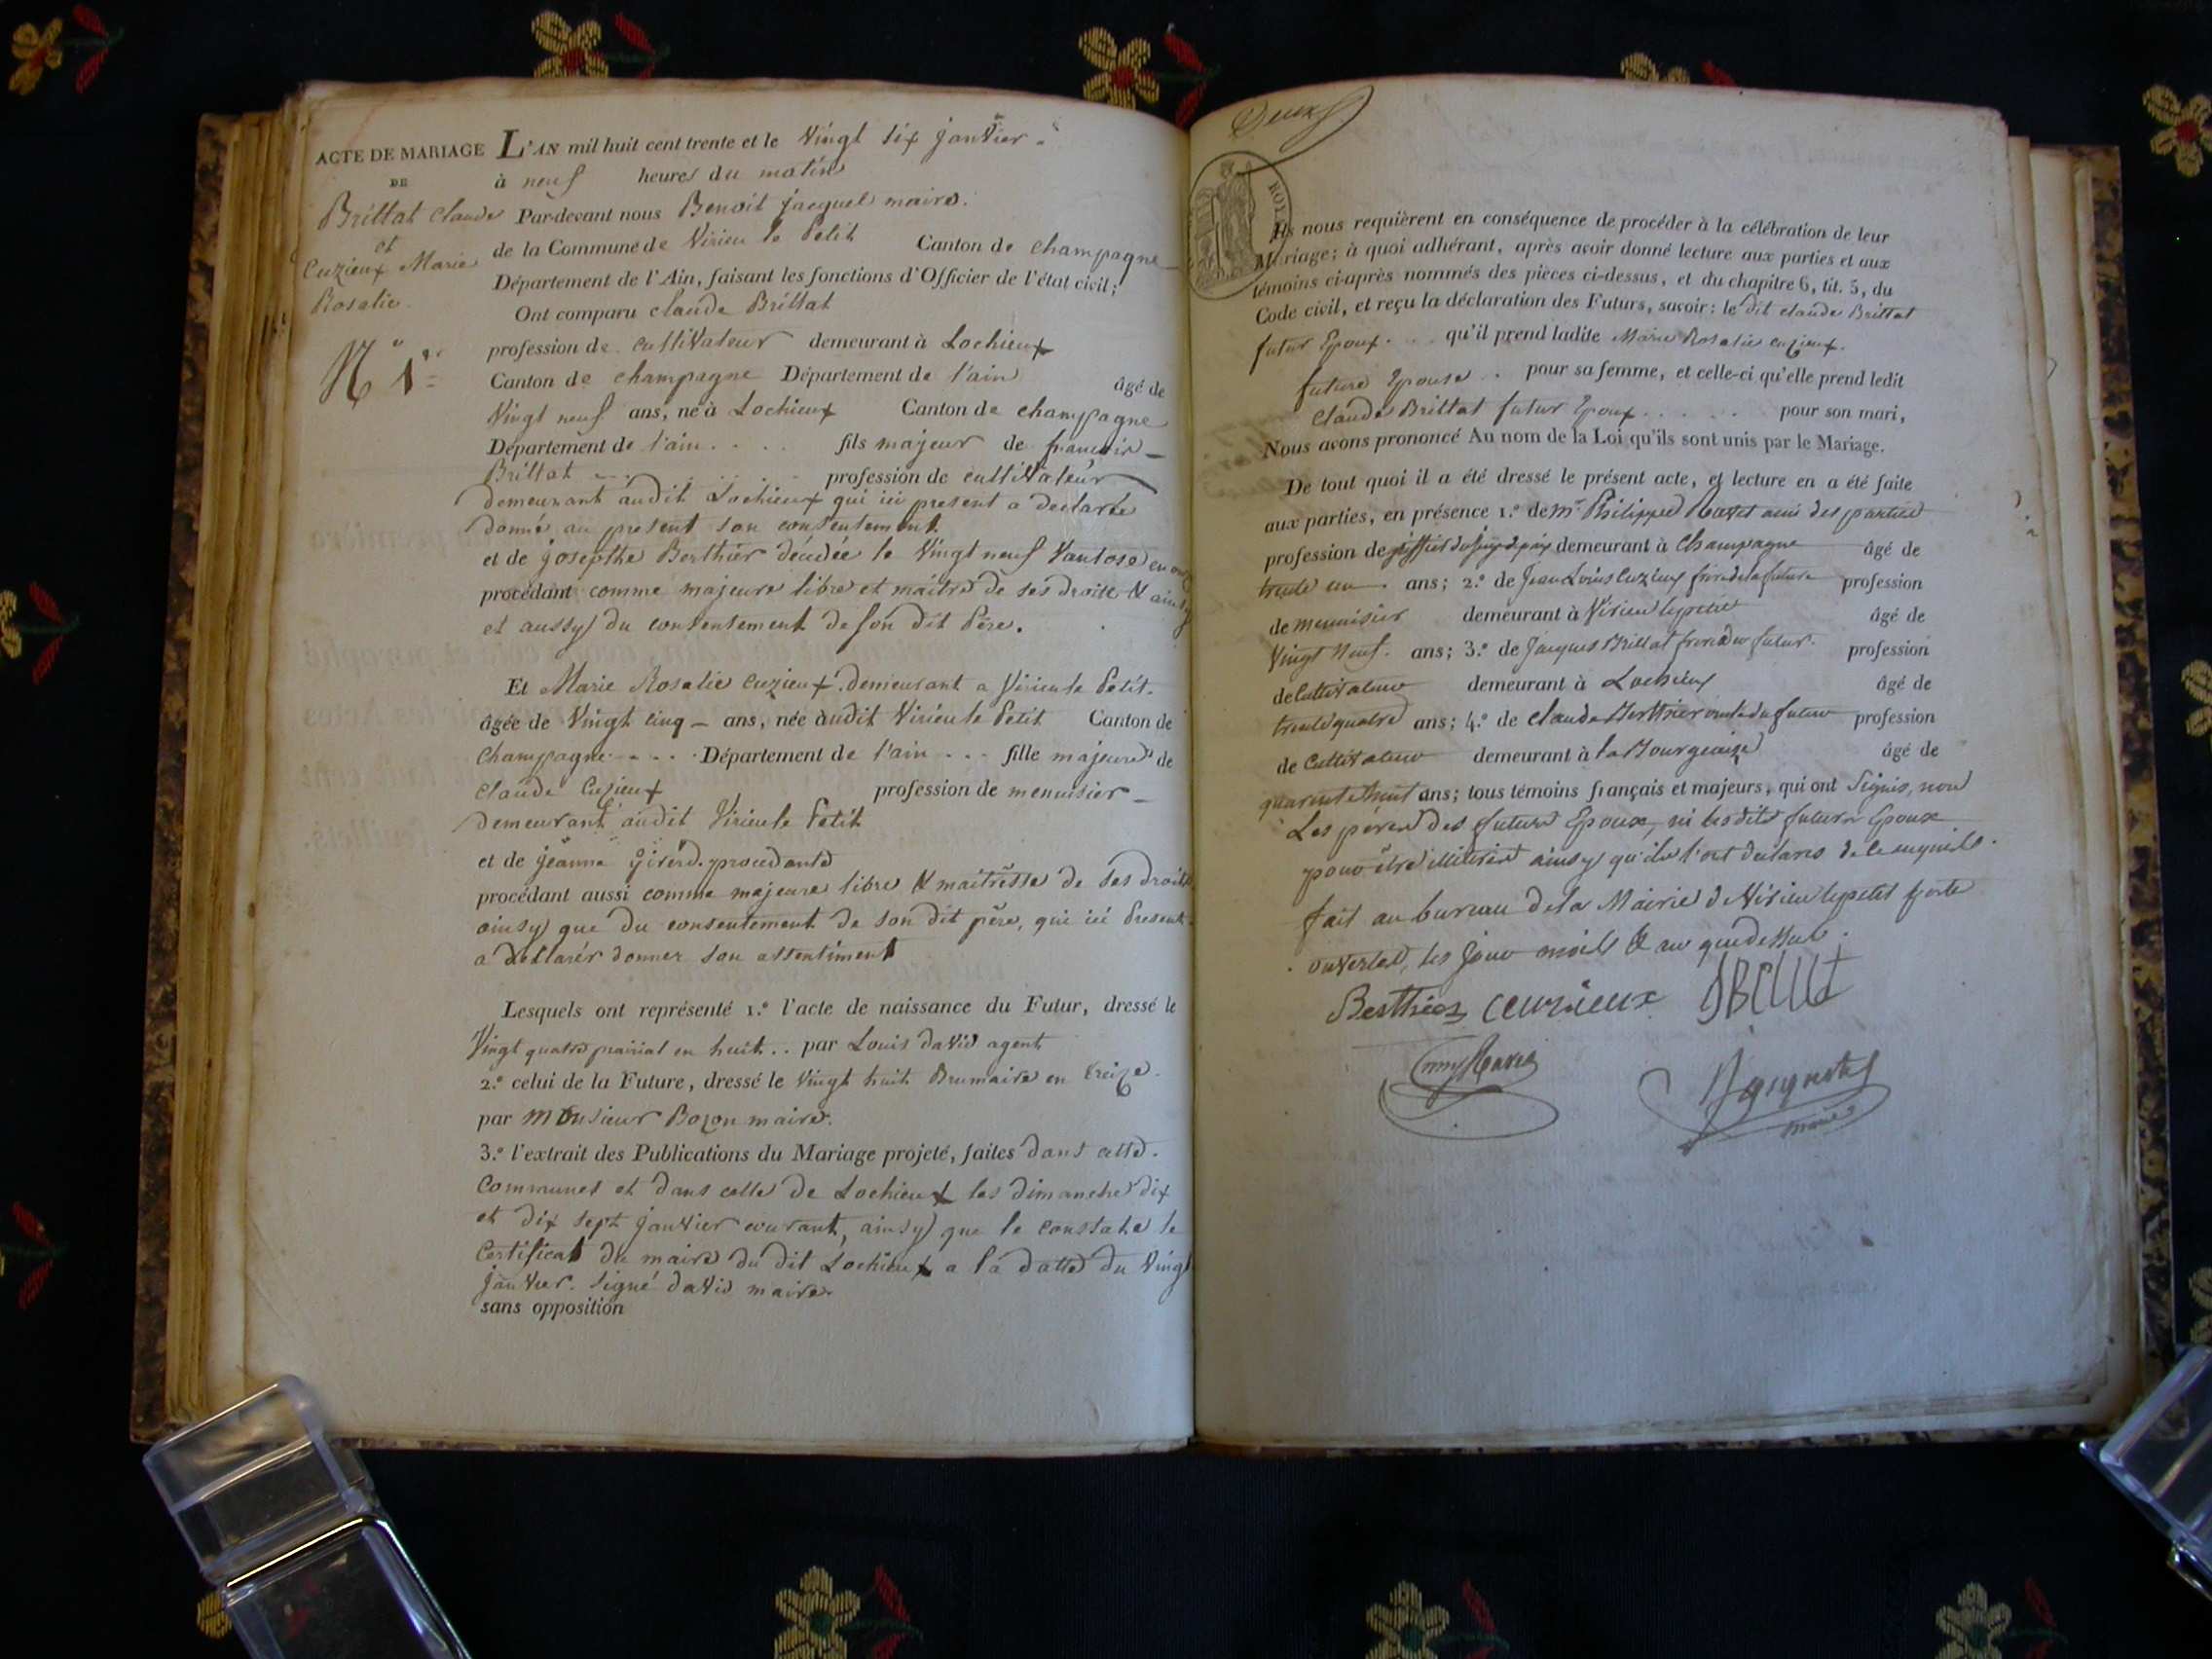 ACTE DE MARIAGE
DE
Brillat Claude
et
Cuzieux Marie
Rosalie.
N.º 1.er
L'AN mil huit cent trente et le Vingt Six janvier
à neuf heures du matin
Par-devant nous Benoit jacquet maire.
de la Commune de Virieu le Petit Canton de Champagne
Département de l'Ain, faisant les fonctions d'Officier de l'état civil;
Ont comparu claude Brillat
profession de cultivateur demeurant à Lochieux
Canton de champagne Département de l'ain âgé de
Vingt neuf ans, né à Lochieux Canton de champagne
Département de l'ain . . . . fils majeur de francois
Brillat profession de cultivateur
demeurant audit Lochieux qui ici present a declarée
donné au present son consentement.
et de josepthe Berthier décédée le Vingt neuf Vantose en onze
procédant comme majeure libre et maitre de ses droits & ainsy
et aussy du consentement de son dit Père.
Et Marie Rosalie cuzieux demeurant a Virieu le Petit.
âgée de Vingt cinq ans, née audit Virieu le Petit Canton de
Champagne . . . . Département de l'ain . . . fille majeure de
Claude Cuzieux profession de menuisier
demeurant audit Virieu le Petit
et de jeanne procedante
procédant aussi comme majeure libre & maitresse de ses droits
ainsy que du consentement de son dit père, qui ici Present
a declarér donner son assentiment
Lesquels ont représenté 1.º l'acte de naissance du Futur, dressé le
Vingt quatre prairial en huit . . par Louis david agent
2.º celui de la Future, dressé le Vingt huit Brumaire en treize.
par monsieur Bozon maire.
3.º l'extrait des Publications du Mariage projeté, faites dans cette.
Communes et dans celle de Lochieux les dimanche dix
et dix sept janvier courant, ainsy que le constate le
Certificat du maire du dit Lochieux a la datte du Vingt
janvier. signé david maire
sans opposition
Deux
ROYAL
Ils nous requièrent en conséquence de procéder à la célébration de leur
Mariage; à quoi adhérant, après avoir donné lecture aux parties et aux
témoins ci-après nommés des pièces ci-dessus, et du chapitre 6, tit. 5, du
Code civil, et reçu la déclaration des Futurs, savoir: le dit claude Brillat
futur Epoux. . . . qu'il prend ladite Marie Rosalie cuzieux.
future Epouse . . pour sa femme, et celle-ci qu'elle prend ledit
Claude Brillat futur Epoux . . . . . . pour son mari,
Nous avons prononcé Au nom de la Loi qu'ils sont unis par le Mariage.
De tout quoi il a été dressé le présent acte, et lecture en a été faite
aux parties, en présence 1.º de Mr. Philippe Ravet ami des parties
profession de demeurant à Champagne âgé de
trente ans; 2.º de Jean Louis Cuzieux frere de la future profession
de menuisier demeurant à Virieu le petit âgé de
Vingt Neuf. ans; 3.º de Jacques Brillat frere du futur. profession
de Cultivateur demeurant à Lochieux âgé de
trente quatre ans; 4.º de claude Berthier oncle du futur profession
de Cultivateur demeurant à la Bourgeoise âgé de
quarente huit ans; tous témoins français et majeurs, qui ont Signés, non
Les péres des futurs Epoux, ni lesdits futurs Epoux
pour être illitérés ainsy qu'ils l'ont declarés de ce enquis.
fait au bureau de la Mairie de Virieu le petit porte
ouvertes, les jour mois & an que dessus.
Berthier ceuzieux JBCUUt
Ravet
maire